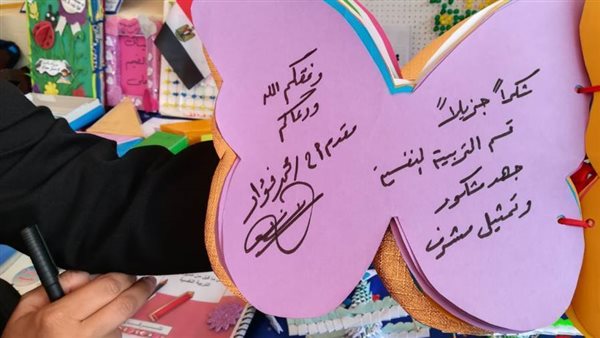 شكراً جزيلاً
قسم التربية النفسية
جهد مشكور
وتمثيل مشرف
وفقكم الله
ورعاكم
محمد فؤاد
التربية النفسية